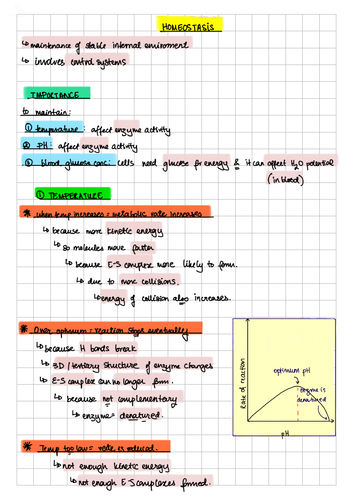 HOMEOSTASIS
↳ maintenance of stable internal enviroment
↳ involves control systems
IMPORTANCE
to maintain:
① temperature: affect enzyme activity
② pH: affect enzyme activity
③ blood glucose conc: cells need glucose for energy & it can affect H₂O potential
(in blood)
① TEMPERATURE
* when temp increases = metabolic rate increases
↳ because more kinetic energy
↳ so molecules move faster
↳ because E-S complex more likely to form.
↳ due to more collisions.
↳ energy of collision also increases.
* Over optimum = reaction stops eventually
↳ because H bonds break
↳ 3D / tertiary structure of enzyme changes
↳ E-S complex can no longer form.
↳ because not complementary
↳ enzyme = denatured.
rate of reaction
optimum pH
enzyme is
denatured
pH
* Temp too low = rate is reduced.
↳ not enough kinetic energy
↳ not enough E-S complexes formed.